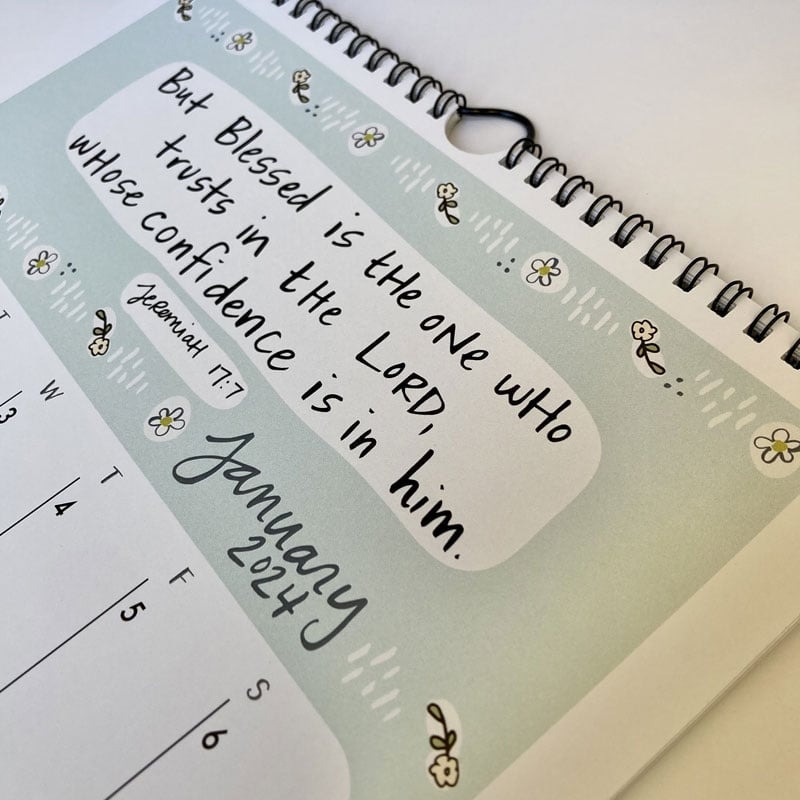 But Blessed is tHe oNe wHo
trusts in tHe LoRD,
wHose confidence is in him.
JeRemiaH 17:7
January
2024
T W T F S
3 4 5 6